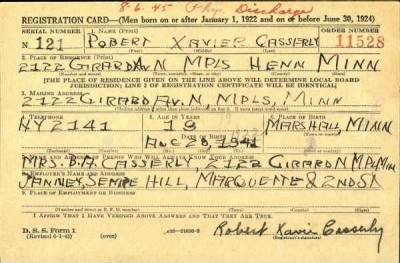 8-6-45 Phy. Discharge
REGISTRATION CARD—(Men born on or after January 1, 1922 and on or before June 30, 1924)
SERIAL NUMBER 1. NAME (Print) ORDER NUMBER
N 121 ROBERT XAVIER CASSERLY 11528
(First) (Middle) (Last)
2. PLACE OF RESIDENCE (Print)
2122 GIRARD AV N MPLS HENN MINN
[THE PLACE OF RESIDENCE GIVEN ON THE LINE ABOVE WILL DETERMINE LOCAL BOARD
JURISDICTION; LINE 2 OF REGISTRATION CERTIFICATE WILL BE IDENTICAL]
3. MAILING ADDRESS
2122 GIRARD AV. N. MPLS, MINN
4. TELEPHONE 5. AGE IN YEARS 6. PLACE OF BIRTH
NY 2141 19 MARSHALL, MINN
DATE OF BIRTH
AUG 20, 1941
7. NAME AND ADDRESS OF PERSON WHO WILL ALWAYS KNOW YOUR ADDRESS
CASSERLY, 2122 GIRARD N MPLS MINN
8. EMPLOYER'S NAME AND ADDRESS
JANNEY, SEMPLE HILL, MARQUETTE & 2ND ST
I AFFIRM THAT I HAVE VERIFIED ABOVE ANSWERS AND THAT THEY ARE TRUE.
D. S. S. Form 1
(over)
Robert Xavier Casserly